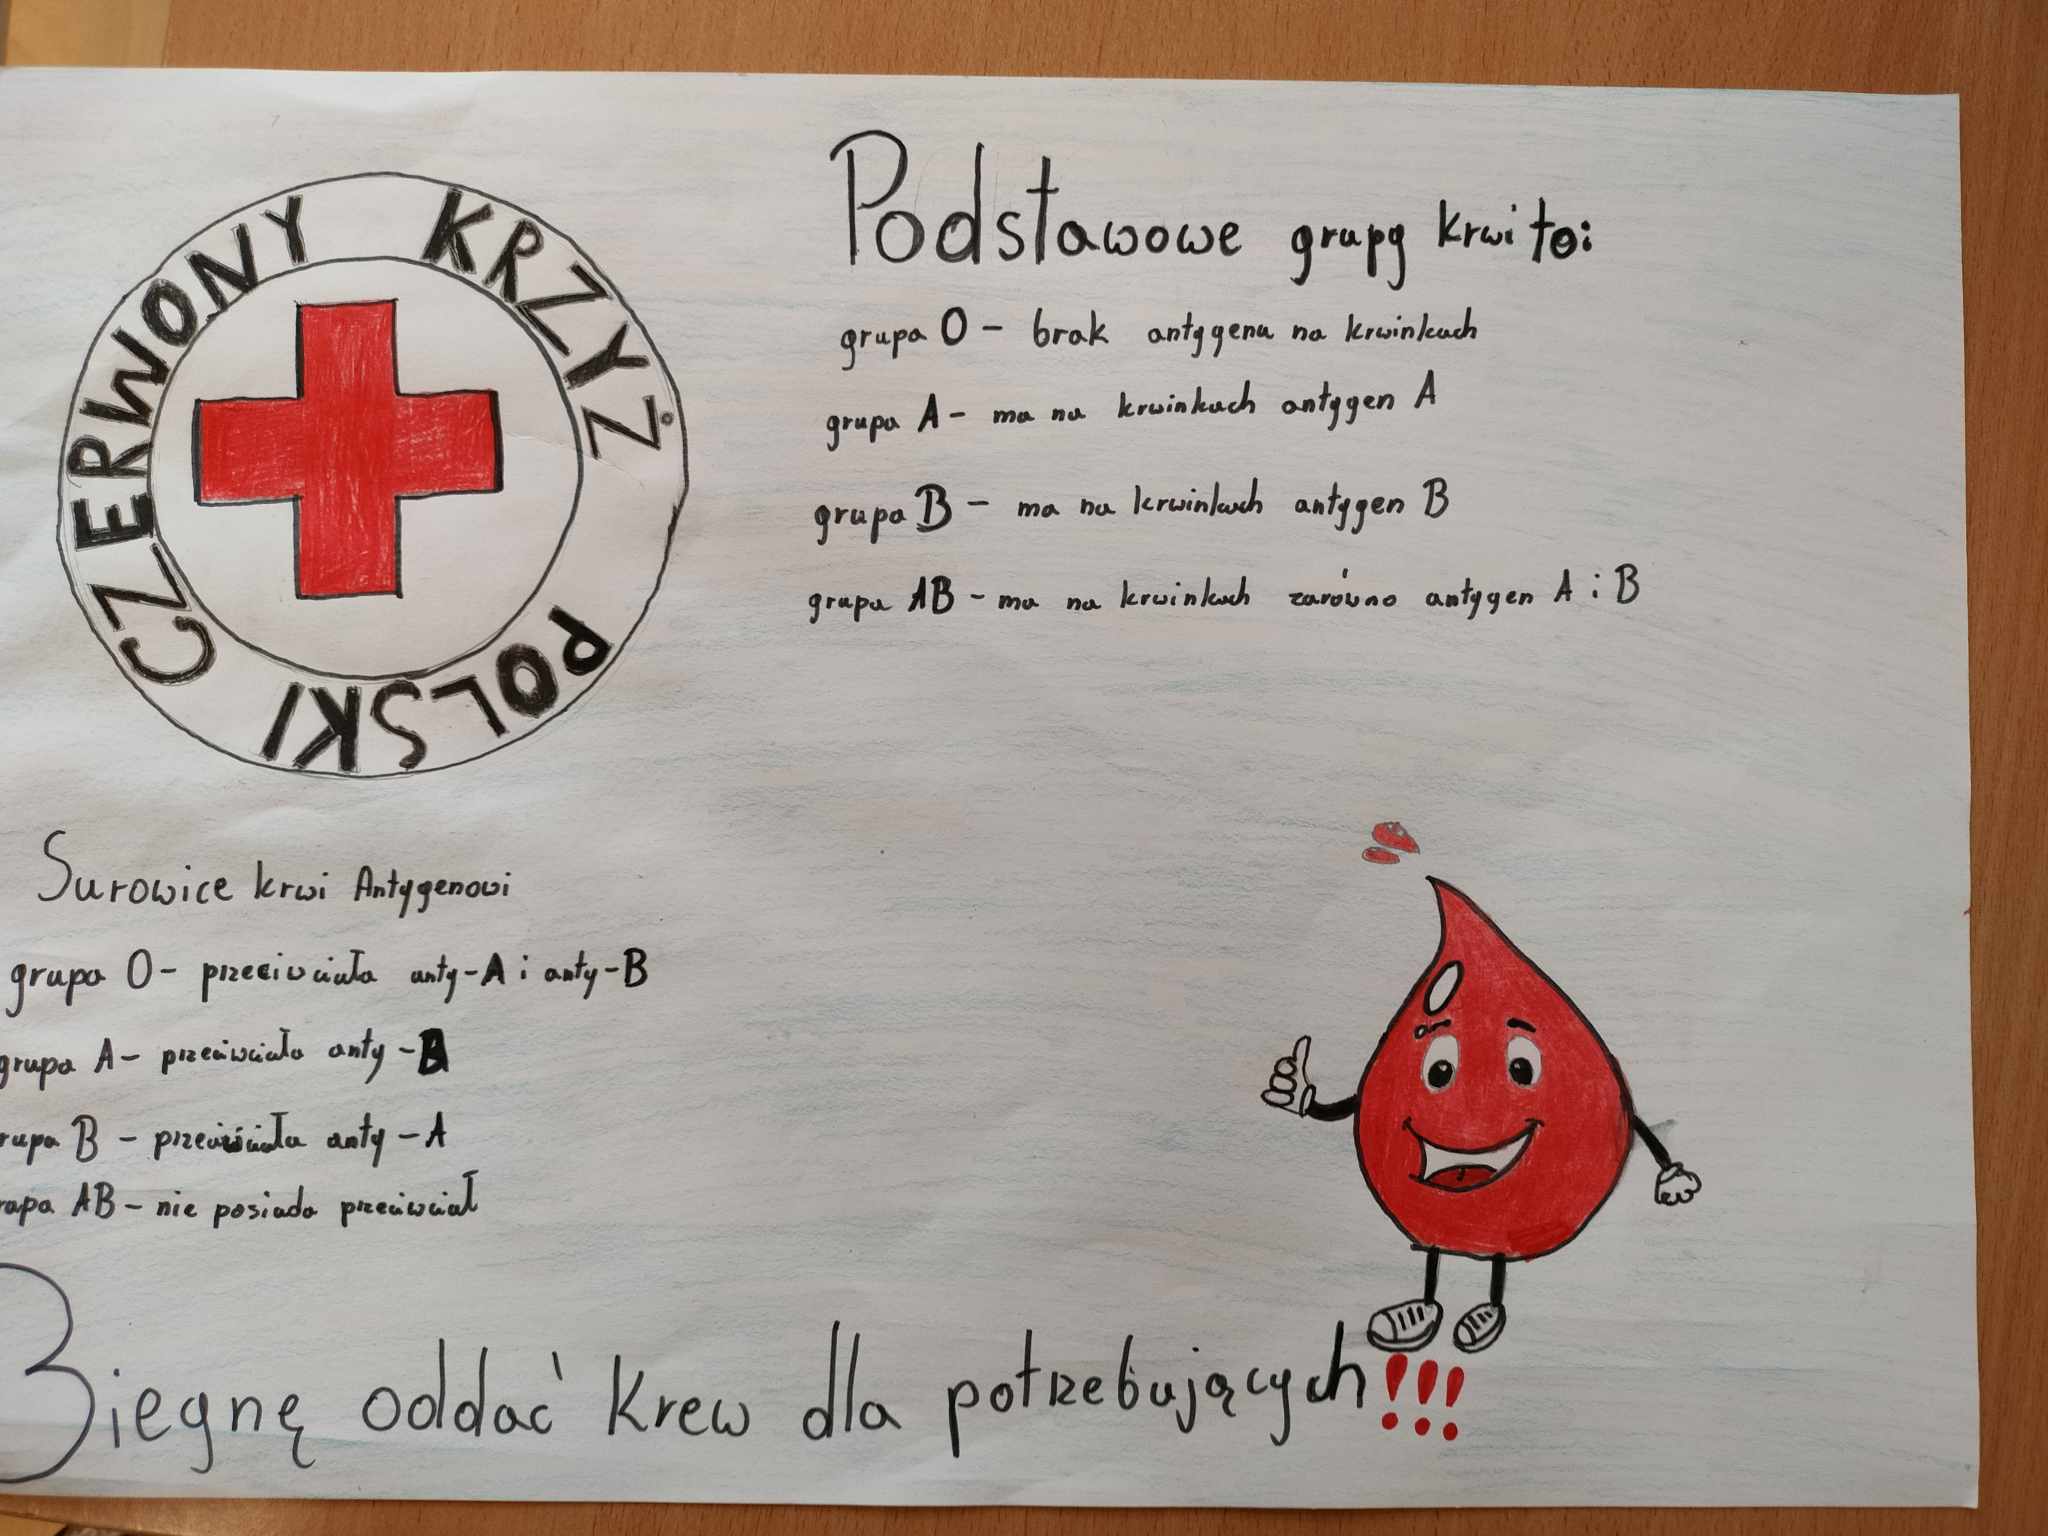 CZERWONY KRZYŻ
POLSKI
Podstawowe grupy krwi to:
grupa O - brak antygenu na krwinkach
grupa A - ma na krwinkach antygen A
grupa B - ma na krwinkach antygen B
grupa AB - ma na krwinkach zarówno antygen A i B
Surowice krwi Antygenowi
grupa O - przeciwciała anty-A i anty-B
grupa A - przeciwciała anty-B
rupa B - przeciwciała anty-A
rupa AB - nie posiada przeciwciał
Biegnę oddać krew dla potrzebujących!!!